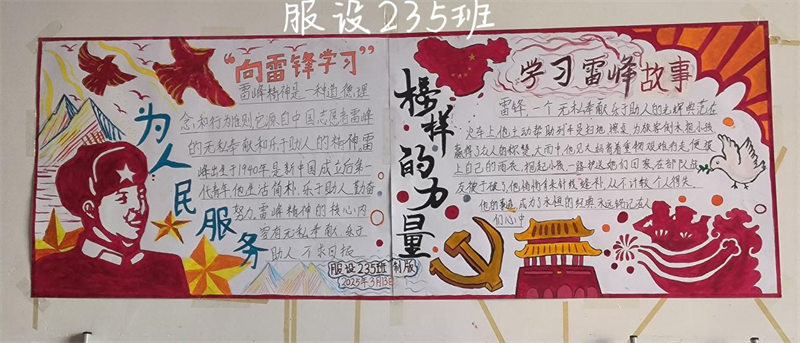 服设235班
“向雷锋学习”
雷峰精神是一种道德理
念,和行为准则,它源自中国志愿者雷峰
的无私奉献和乐于助人的精神雷
峰出生于1940年是新中国成立后第一
代青年他生活简朴,乐于助人,勤奋
努力,雷峰精神的核心内
容有无私奉献,乐于
助人,不求回报
为人民服务
服设235班 制版
2025年3月13日
榜样的力量
学习雷峰故事
雷峰,一个无私奉献,乐于助人的光辉典范在
火车上他主动帮助列车员扫地 擦桌 为旅客倒水抱小孩
赢得了众人的称赞,大雨中,他见大姐背着重物艰难前走,便披
上自己的雨衣,抱起小孩一路护送她们回家在部队战
友被子破了,他悄悄拿针线缝补,从不计较个人得失
他的事迹,成为了永恒的经典永远铭记在人
们心中